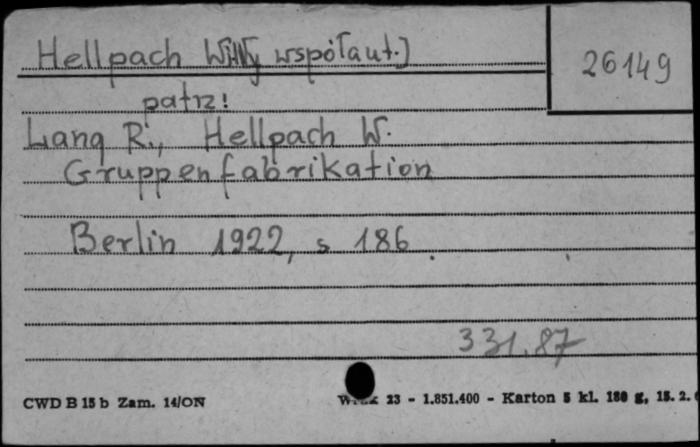 Hellpach Willy współaut.]
26149
patrz!
Lang R., Hellpach W.
Gruppenfabrikation
Berlin 1922, s 186.
331.87
CWD B 15 b Zam. 14/ON 23 - 1.851.400 - Karton 5 kl. 180 g, 15. 2.